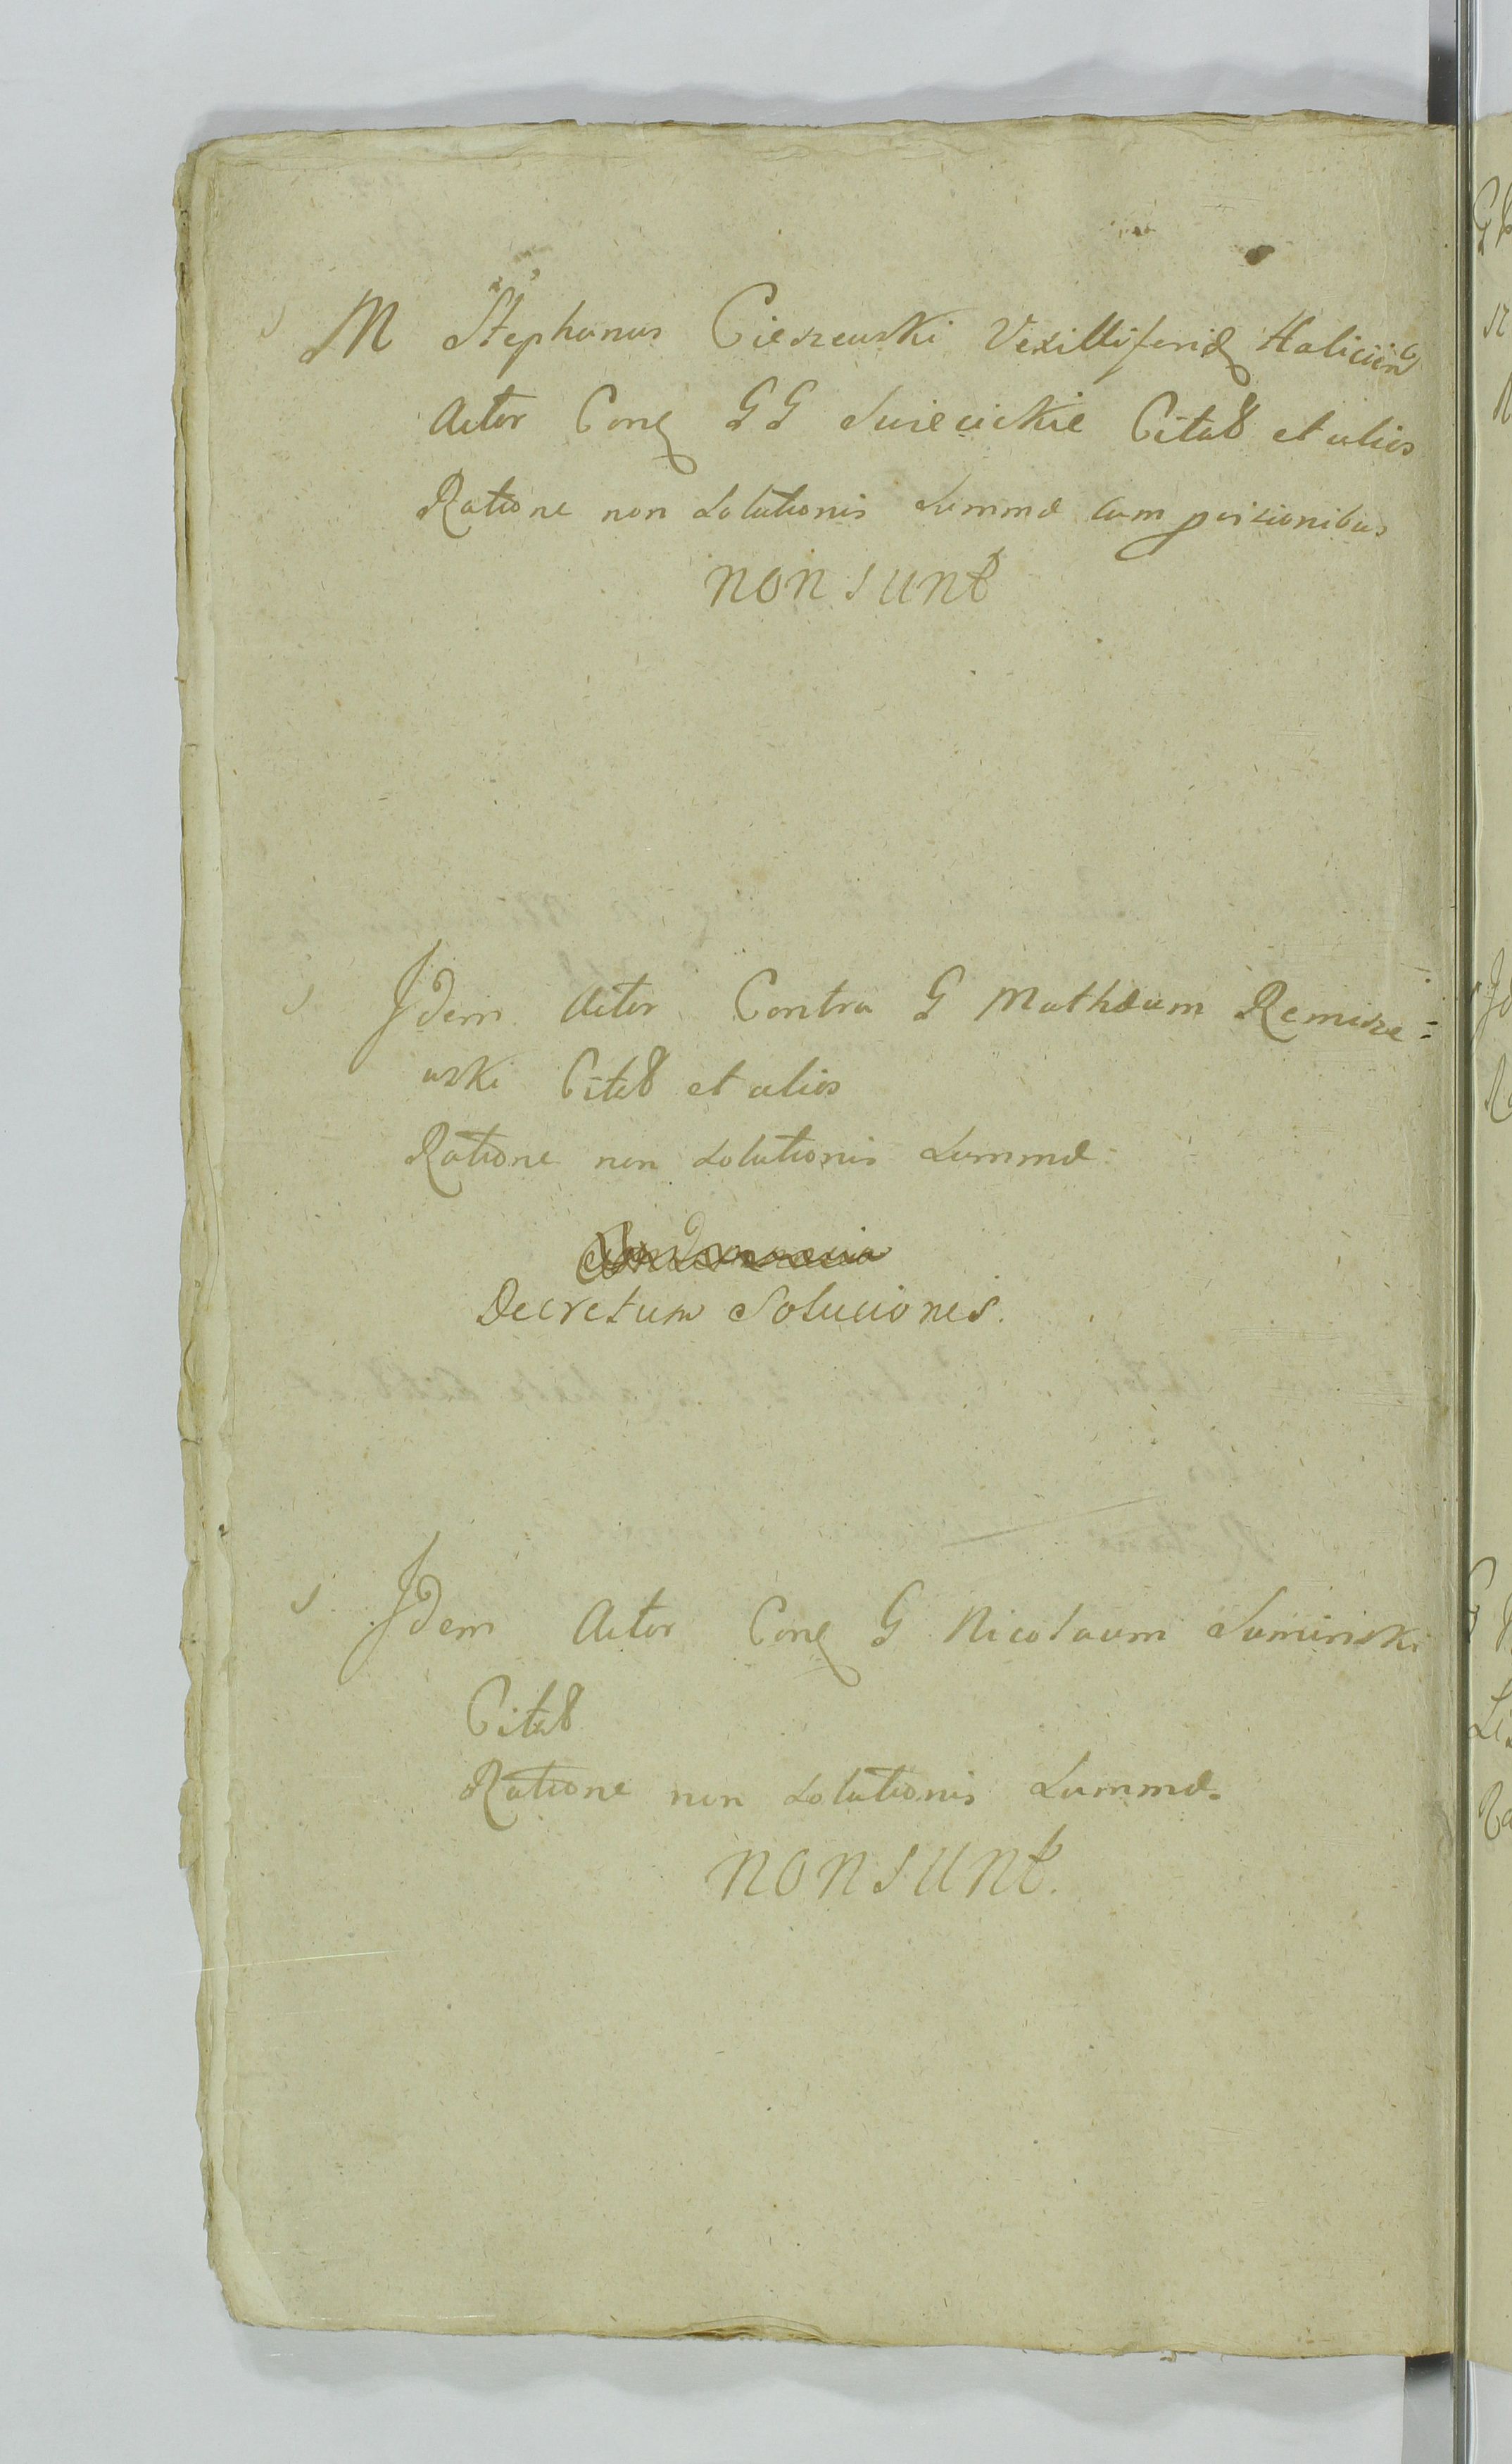 M Stephanus Cieszewski Vexilliferidę Haliciēn
Actor Conę GG Swiecickie Citatt et alios
Ratione non Solutionis Summæ cum provisionibus
non sunt
Idem Actor Contra G Mathæum Remisze=
wski Citatt et alios
Ratione non Solutionis Summæ
Decretum Soluciones.
Idem Actor Conę G Nicolaum Suminski
Citatt
Ratione non Solutionis Summæ.
non sunt.